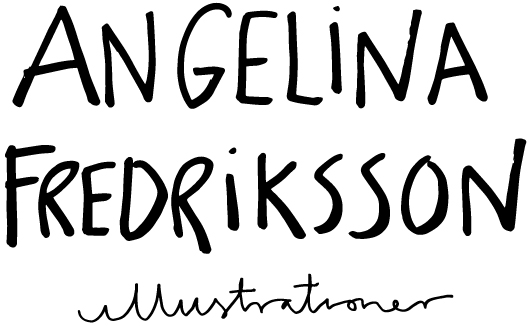 ANGELiNA
FREDRiKSSON
illustrationer